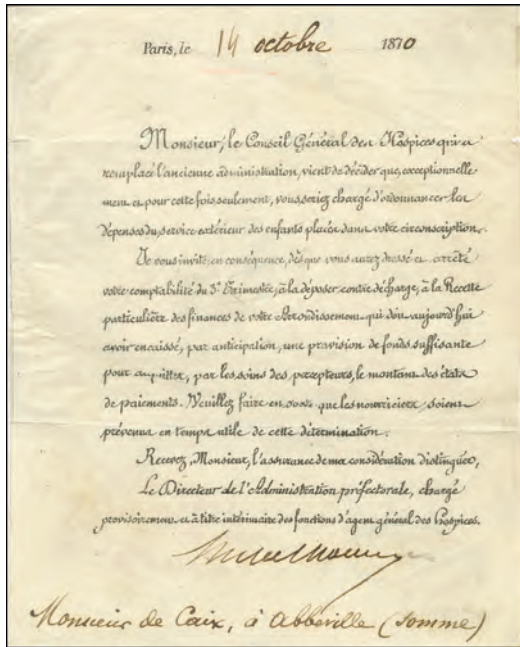 Paris, le 14 octobre 1870
Monsieur, le Conseil Général des Hospices qui a
remplacé l'ancienne administration, vient de décider que, exceptionnelle
ment et pour cette fois seulement, vous seriez chargé d'ordonnancer les
dépenses du service extérieur des enfants placés dans votre circonscription.
Je vous invite, en conséquence, dès que vous aurez dressé et arrêté
votre comptabilité du 3e Trimestre, à la déposer, contre décharge, à la Recette
particulière des finances de votre Arrondissement qui doit aujourd'hui
avoir encaissé, par anticipation, une provision de fonds suffisante
pour acquitter, par les soins des percepteurs, le montant des états
de paiements. Veuillez faire en sorte que les nourriciers soient
prévenus en temps utile de cette détermination.
Recevez, Monsieur, l'assurance de ma considération distinguée,
Le Directeur de l'Administration préfectorale, chargé
provisoirement et à titre intérimaire des fonctions d'agent général des Hospices.
Monsieur de Caix, à Abbeville (Somme)